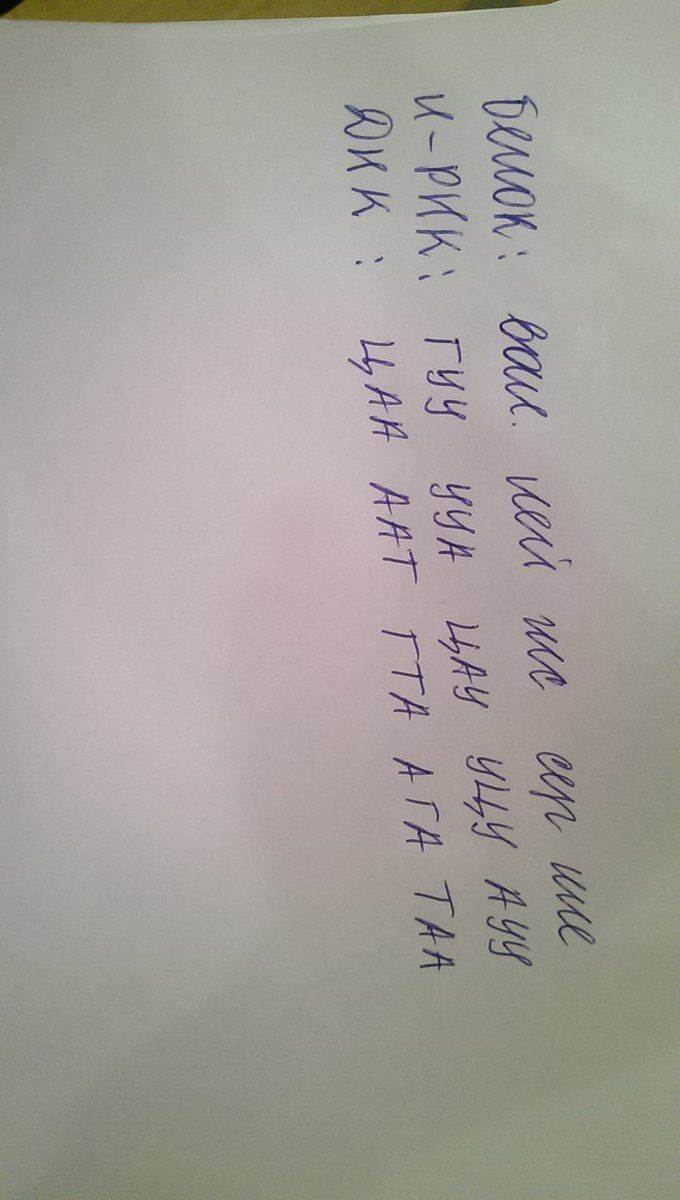 Белок: вал. лей гис сер иле
и-РНК: ГУУ УУА ЦАУ УЦУ АУУ
ДНК: ЦАА ААТ ГТА АГА ТАА